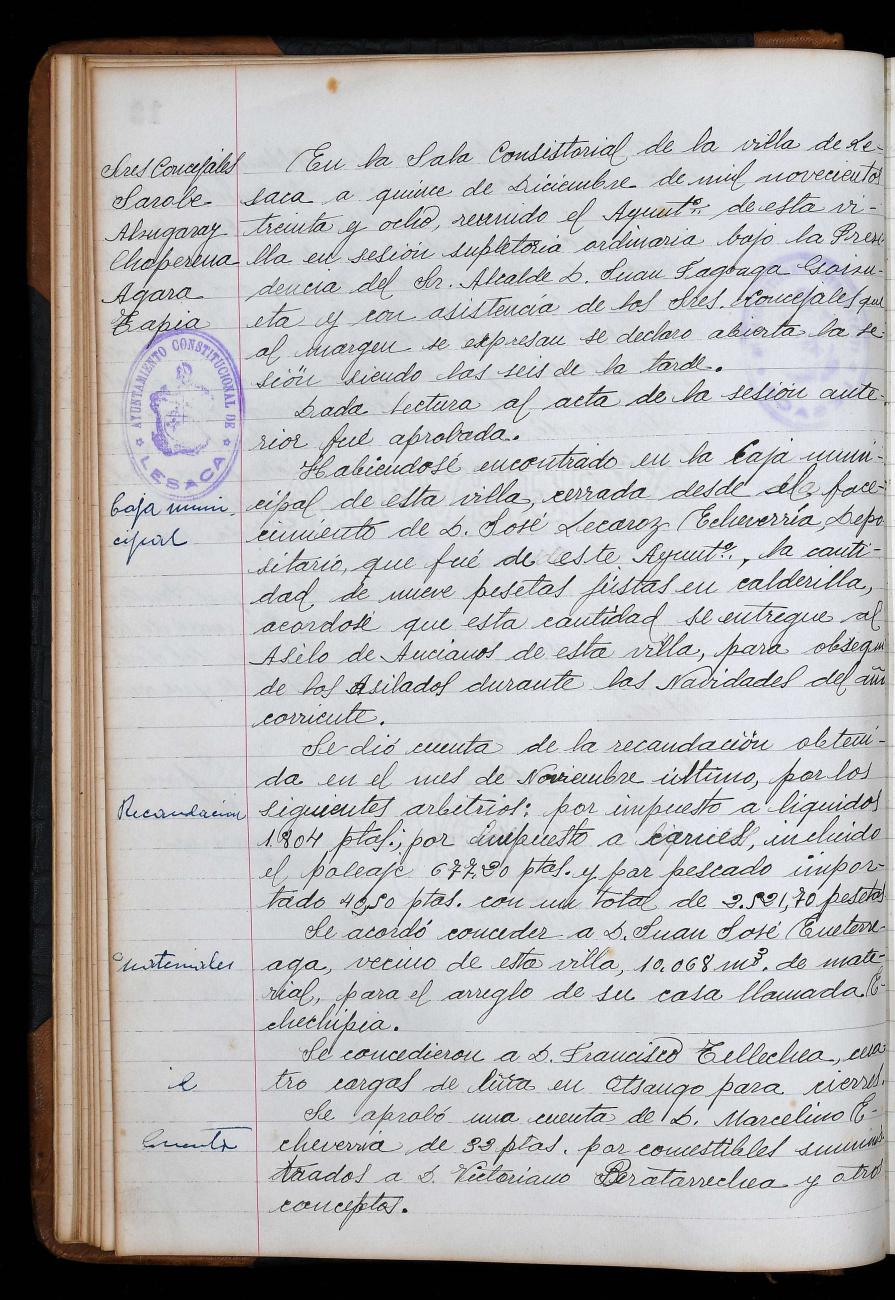 Sres Concejales
Sarobe
Alzugaray
Choperena
Agara
Tapia
AYUNTAMIENTO CONSTITUCIONAL DE
LESACA
Caja muni-
cipal
Recaudacion
Materiales
id
Cuenta
En la Sala Consistorial de la villa de Le-
saca a quince de Diciembre de mil novecientos
treinta y ocho, reunido el Ayuntº. de esta vi-
lla en sesión supletoria ordinaria bajo la Presi
dencia del Sr. Alcalde D. Juan Tagoaga Goisu-
eta y con asistencia de los Sres. Concejales que
al margen se expresan se declaro abierta la se
sión siendo las seis de la tarde.
Dada lectura al acta de la sesión ante-
rior fué aprobada.
Habiendosé encontrado en la Caja muni-
cipal de esta villa, cerrada desde el falle-
cimiento de D. José Lecaroz Echeverría Depo
sitario, que fué de este Ayuntº., la canti-
dad de nueve pesetas justas en calderilla,
acordosé que esta cantidad se entregue al
Asilo de Ancianos de esta villa, para obsequi
de los Asilados durante las Navidades del añ
corriente.
Se dió cuenta de la recaudación obteni-
da en el mes de Noviembre último, por los
siguientes arbitrios: por impuesto a liquidos
1.804 ptas.; por impuesto a carnes, incluido
el poleaje 677,20 ptas. y por pescado impor-
tado 40,50 ptas. con un total de 2.521,70 pesetas
Se acordó conceder a D. Juan José Eneterre-
aga, vecino de esta villa, 10.068 m3. de mate-
rial, para el arreglo de su casa llamada E-
chechipia.
Se concedieron a D. Francisco Tellechea, cua
tro cargas de leña en Otsango para cierres.
Se aprobó una cuenta de D. Marcelino E-
cheverria de 33 ptas. por comestibles suminis
trados a D. Victoriano Beratarrechea y otros
conceptos.